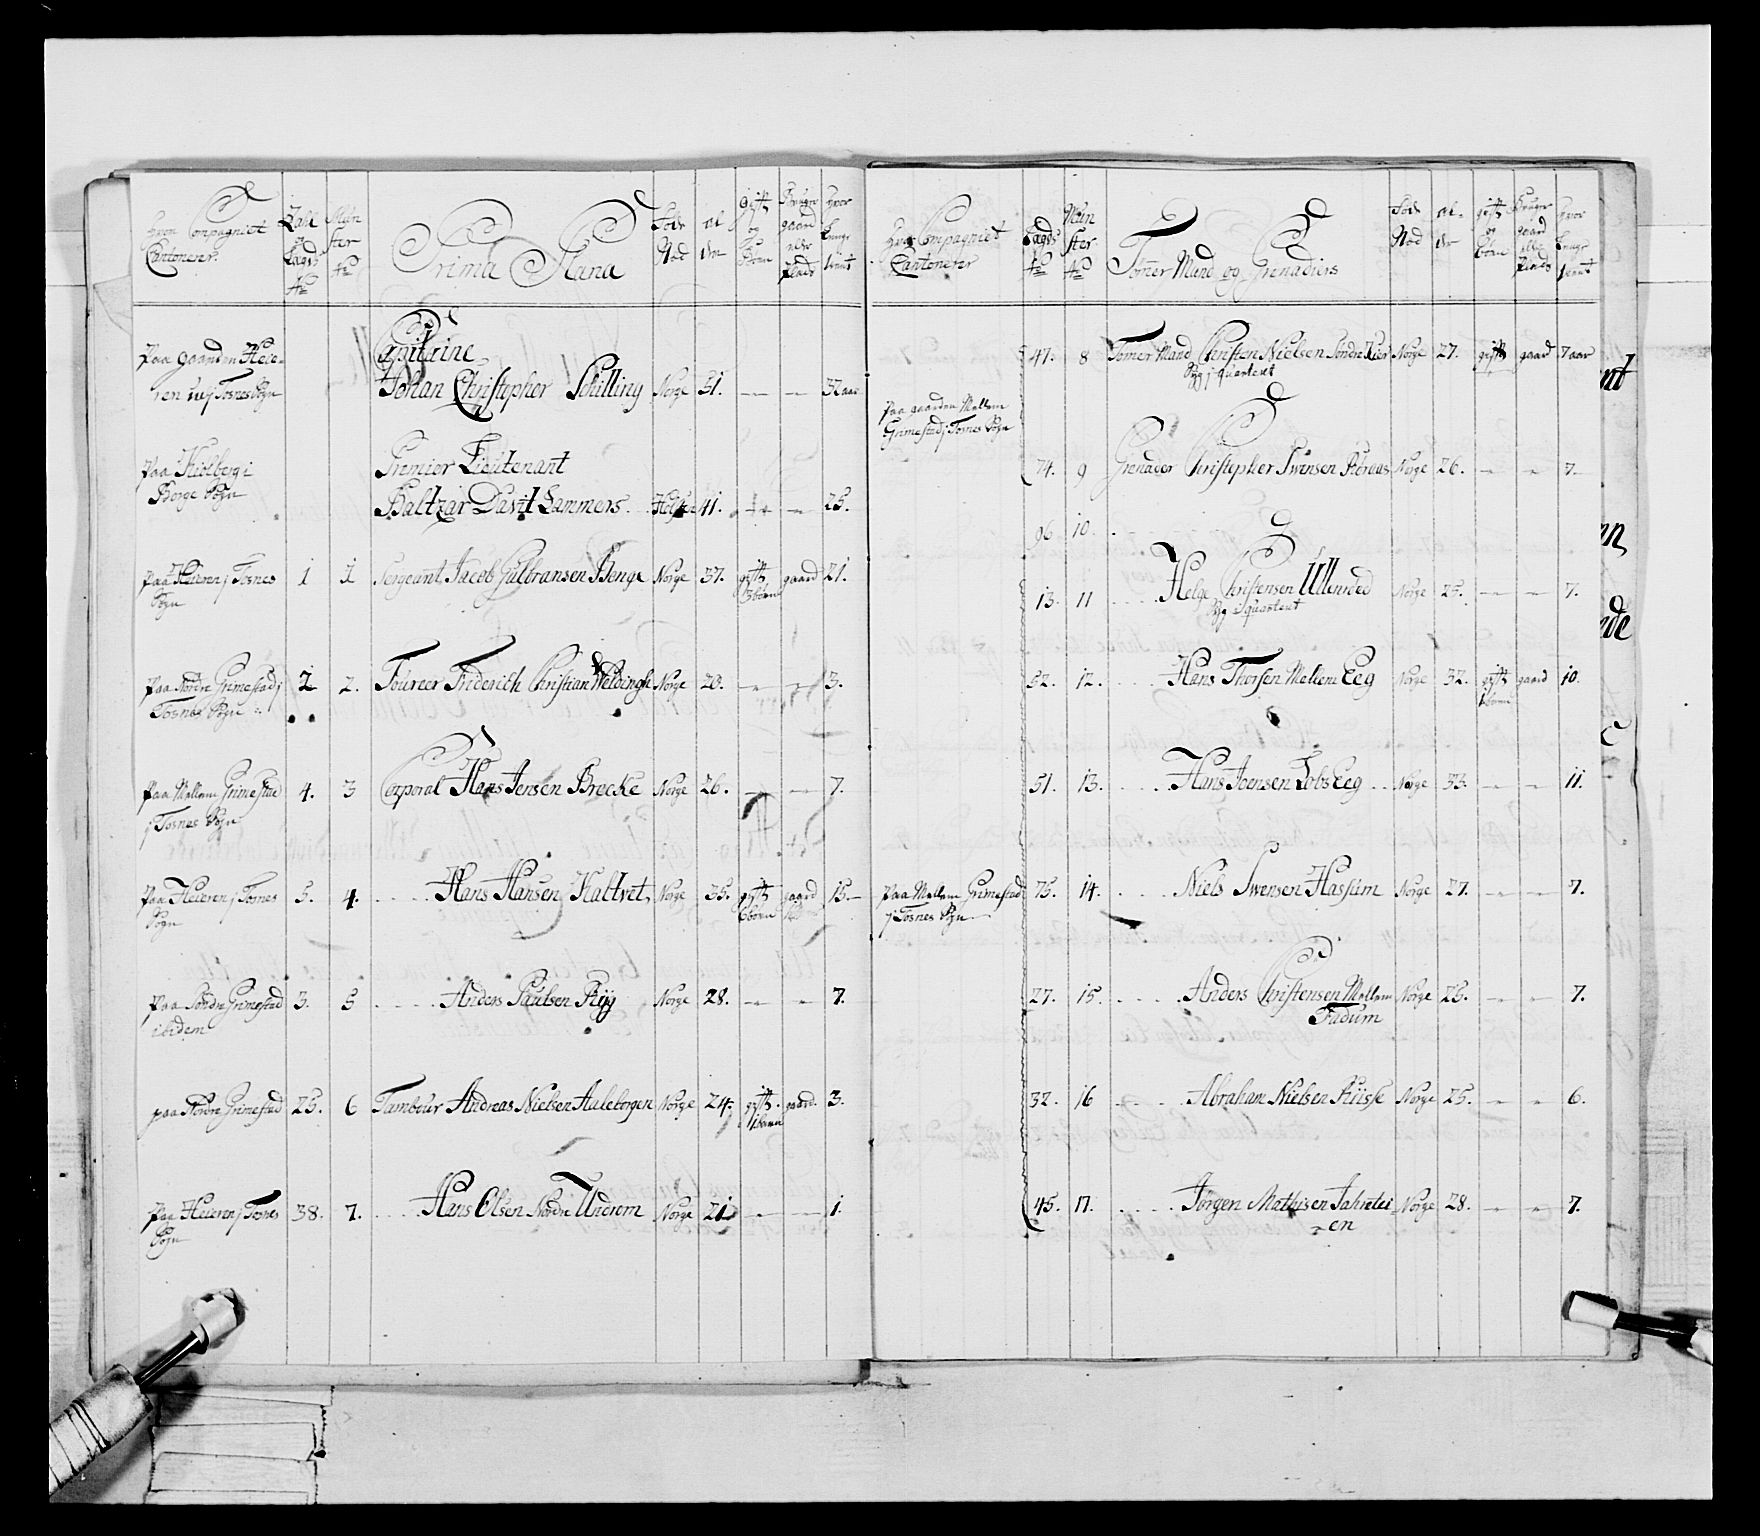 Hvor Compagniet Cantonerer.
Lagd No
Mün ster No
Prima Plana
Föde Stæd
al der
gift og Börn
Bruger gaard eller Plads
Hvor længe tient
Paa gaarden Heie-
ren udj Tosnes Sogn
Capitaine
Johan Christopher Schilling Norge 51. — — 32 aar
Paa Kiölberg i
Borge Sogn
Premier Lieutenant
Baltzar David Lammers Holsten 41. — — 25.
Paa Heieren j Tosnes
Sogn
1 1 Sergeant Jacob Gulbransen Benge Norge 37. gift gaard 21.
3 börn
Paa Nordre Grimestad j
Tosnes Sogn
2 2. Foureer Friderich Christian Weldingh Norge 20. — — 3.
Paa Mellem Grimestad
j Tosnes Sogn
4. 3 Corporal Hans Jensen Brecke Norge 26. — — 7.
Paa Heieren j Tosnes
Sogn
5. 4. Hans Hansen Haltvet Norge 35. gift gaard 15.
6 börn
Paa Söndre Grimestad
ibidem
3. 5 Anders Paulsen Ryg Norge 28. — — 7.
paa Nordre Grimestad 25. 6 Tambour Andreas Nielsen Aaleborgen Norge 24. gift gaard. 3.
1 barn
Paa Heieren j Tosnes
Sogn
38. 7. Hans Olsen Nordre Undrem Norge 21 — — 1.
Hvor Compagniet Cantonerer
Lagds No
Mün ster No
Tömer Mand og Grenadiers
Föde Stæd
al der
gift og börn
Bruger gaard eller Plads
Hvor længe tient
47. 8 Tömer Mand Christen Nielsen Söndre Kier Norge 27. gift gaard 7 aar
Syg j quarteret
Paa gaarden Mellem
Grimestad j Tosnes Sogn
74. 9 Grenader Christopher Swensen Norge 26. — — 7.
96 10.
13. 11 Helge Christensen Ullerud Norge 25. — — 7.
Syg i quarteret
52. 12. Hans Thorsen Mellem Eeg Norge 32. gift gaard 10.
1 barn
51. 13. Hans Joensen Lobs Eeg Norge 33. — — 11.
Paa Mellem Grimestad
j Tosnes Sogn
75. 14. Niels Swensen Hasum Norge 27. — — 7.
27. 15. Anders Christensen Mellem Norge 25. — — 7.
Fadum
32. 16 Abraham Nielsen Norge 25. — — 6.
45. 17. Jörgen Mathisen Norge 28. — — 7.